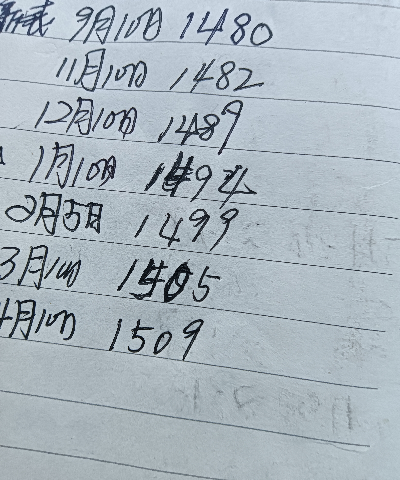 新表 9月10日 1480
11月10日 1482
12月10日 1489
1月10日 1494
2月5日 1499
3月10日 1505
4月10日 1509